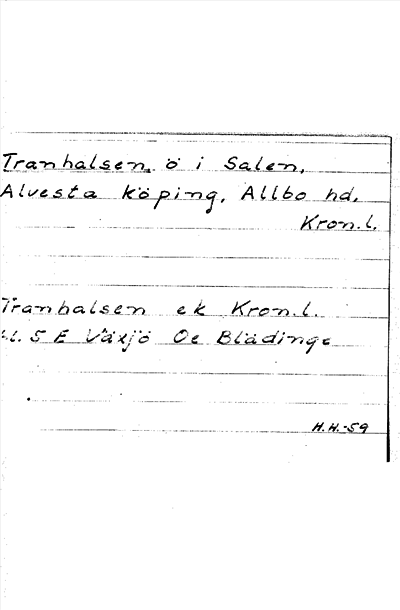 Tranhalsen, ö i Salen,
Alvesta köping, Allbo hd,
Kron.l.
Tranhalsen ek Kron.l.
5 E Växjö Oe Blädinge
H.H.-59